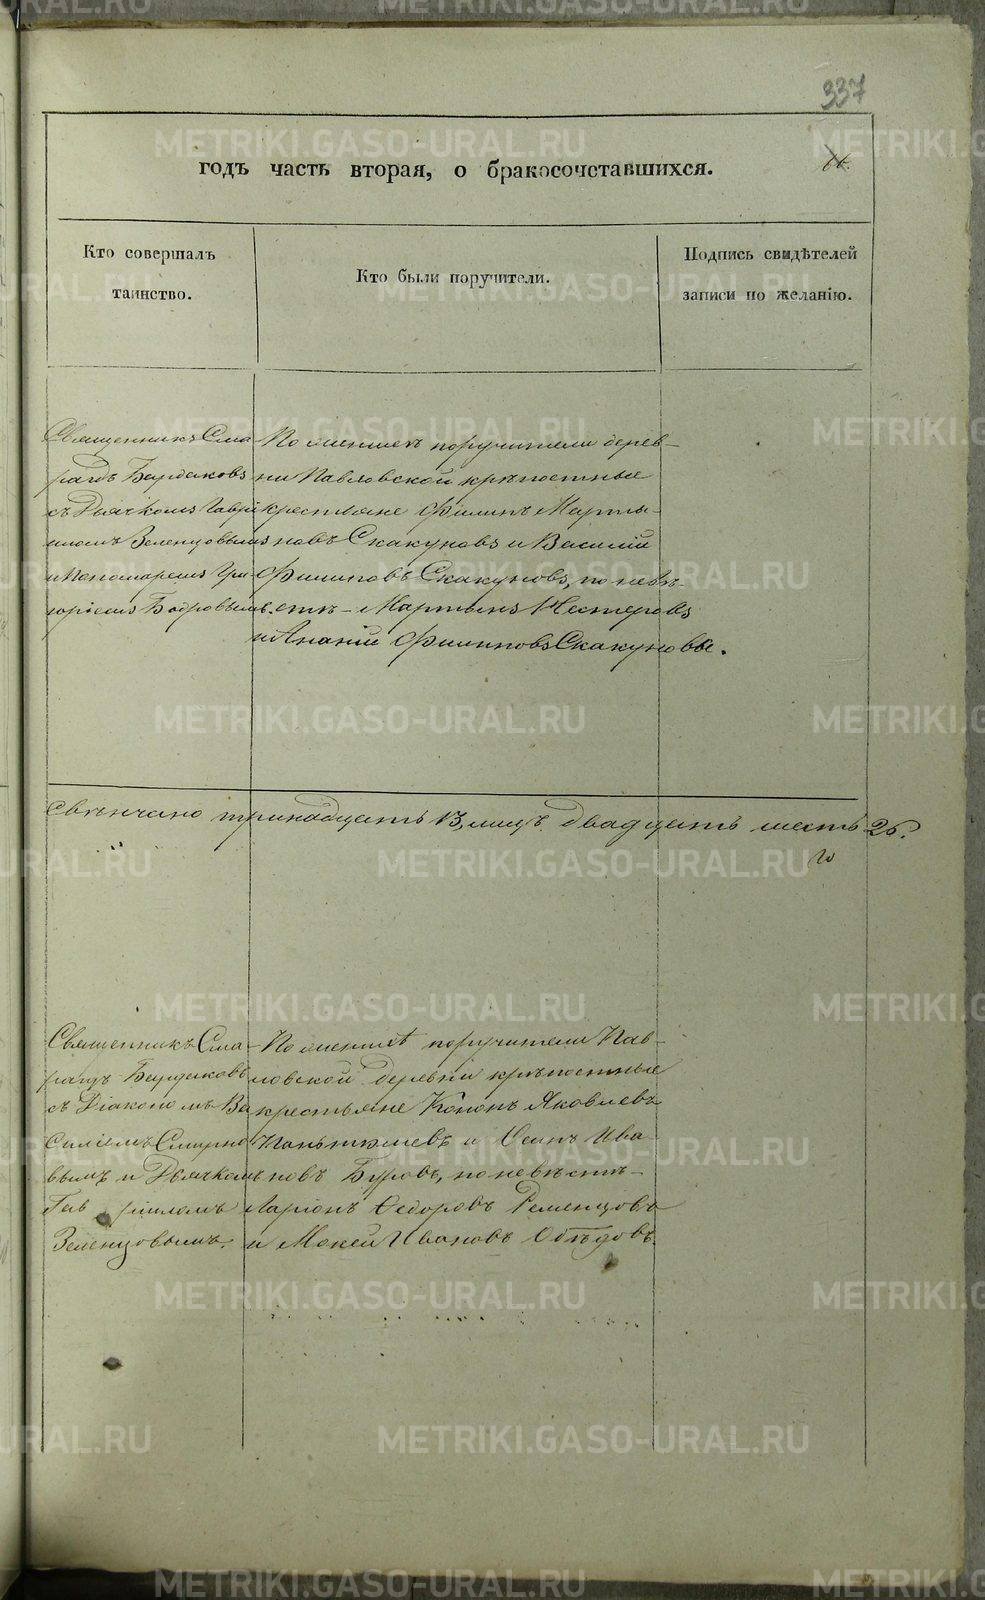 337
годъ часть вторая, о бракосочетавшихся.
66.
Кто совершалъ
таинство.
Кто были поручители.
Подпись свидѣтелей
записи по желанію.
Священникъ Сма-
рагдъ Бардаковъ
съ Дьячкомъ Гаврі
иломъ Зеленцовымъ
и Пономаремъ Гри-
горіемъ Бобровымъ.
По женихѣ поручители дерев-
ни Павловской крѣпостные
крестьяне Филипъ Марты-
новъ Скакуновъ и Василій
Филиповъ Скакуновъ, по невѣ-
стѣ - Мартынъ Нестеровъ
и Ананій Филиповъ Скакуновы.
Свѣнчано тринадцать 13, лицъ двадцать шесть 26.
Священникъ Сма-
рагдъ Бардаковъ
съ Діакономъ Ва
силіемъ Смирно
вымъ и Дьячкомъ
Гавріиломъ
Зеленцовымъ.
По женихѣ поручители Пав-
ловской деревни крѣпостные
крестьяне Кононъ Яковлевъ
и Осипъ Ива-
новъ Буровъ, по невѣстѣ-
Ларіонъ Ѳедоровъ Ременцовъ
и Мокей Ивановъ Обѣдовъ.
METRIKI.GASO-URAL.RU